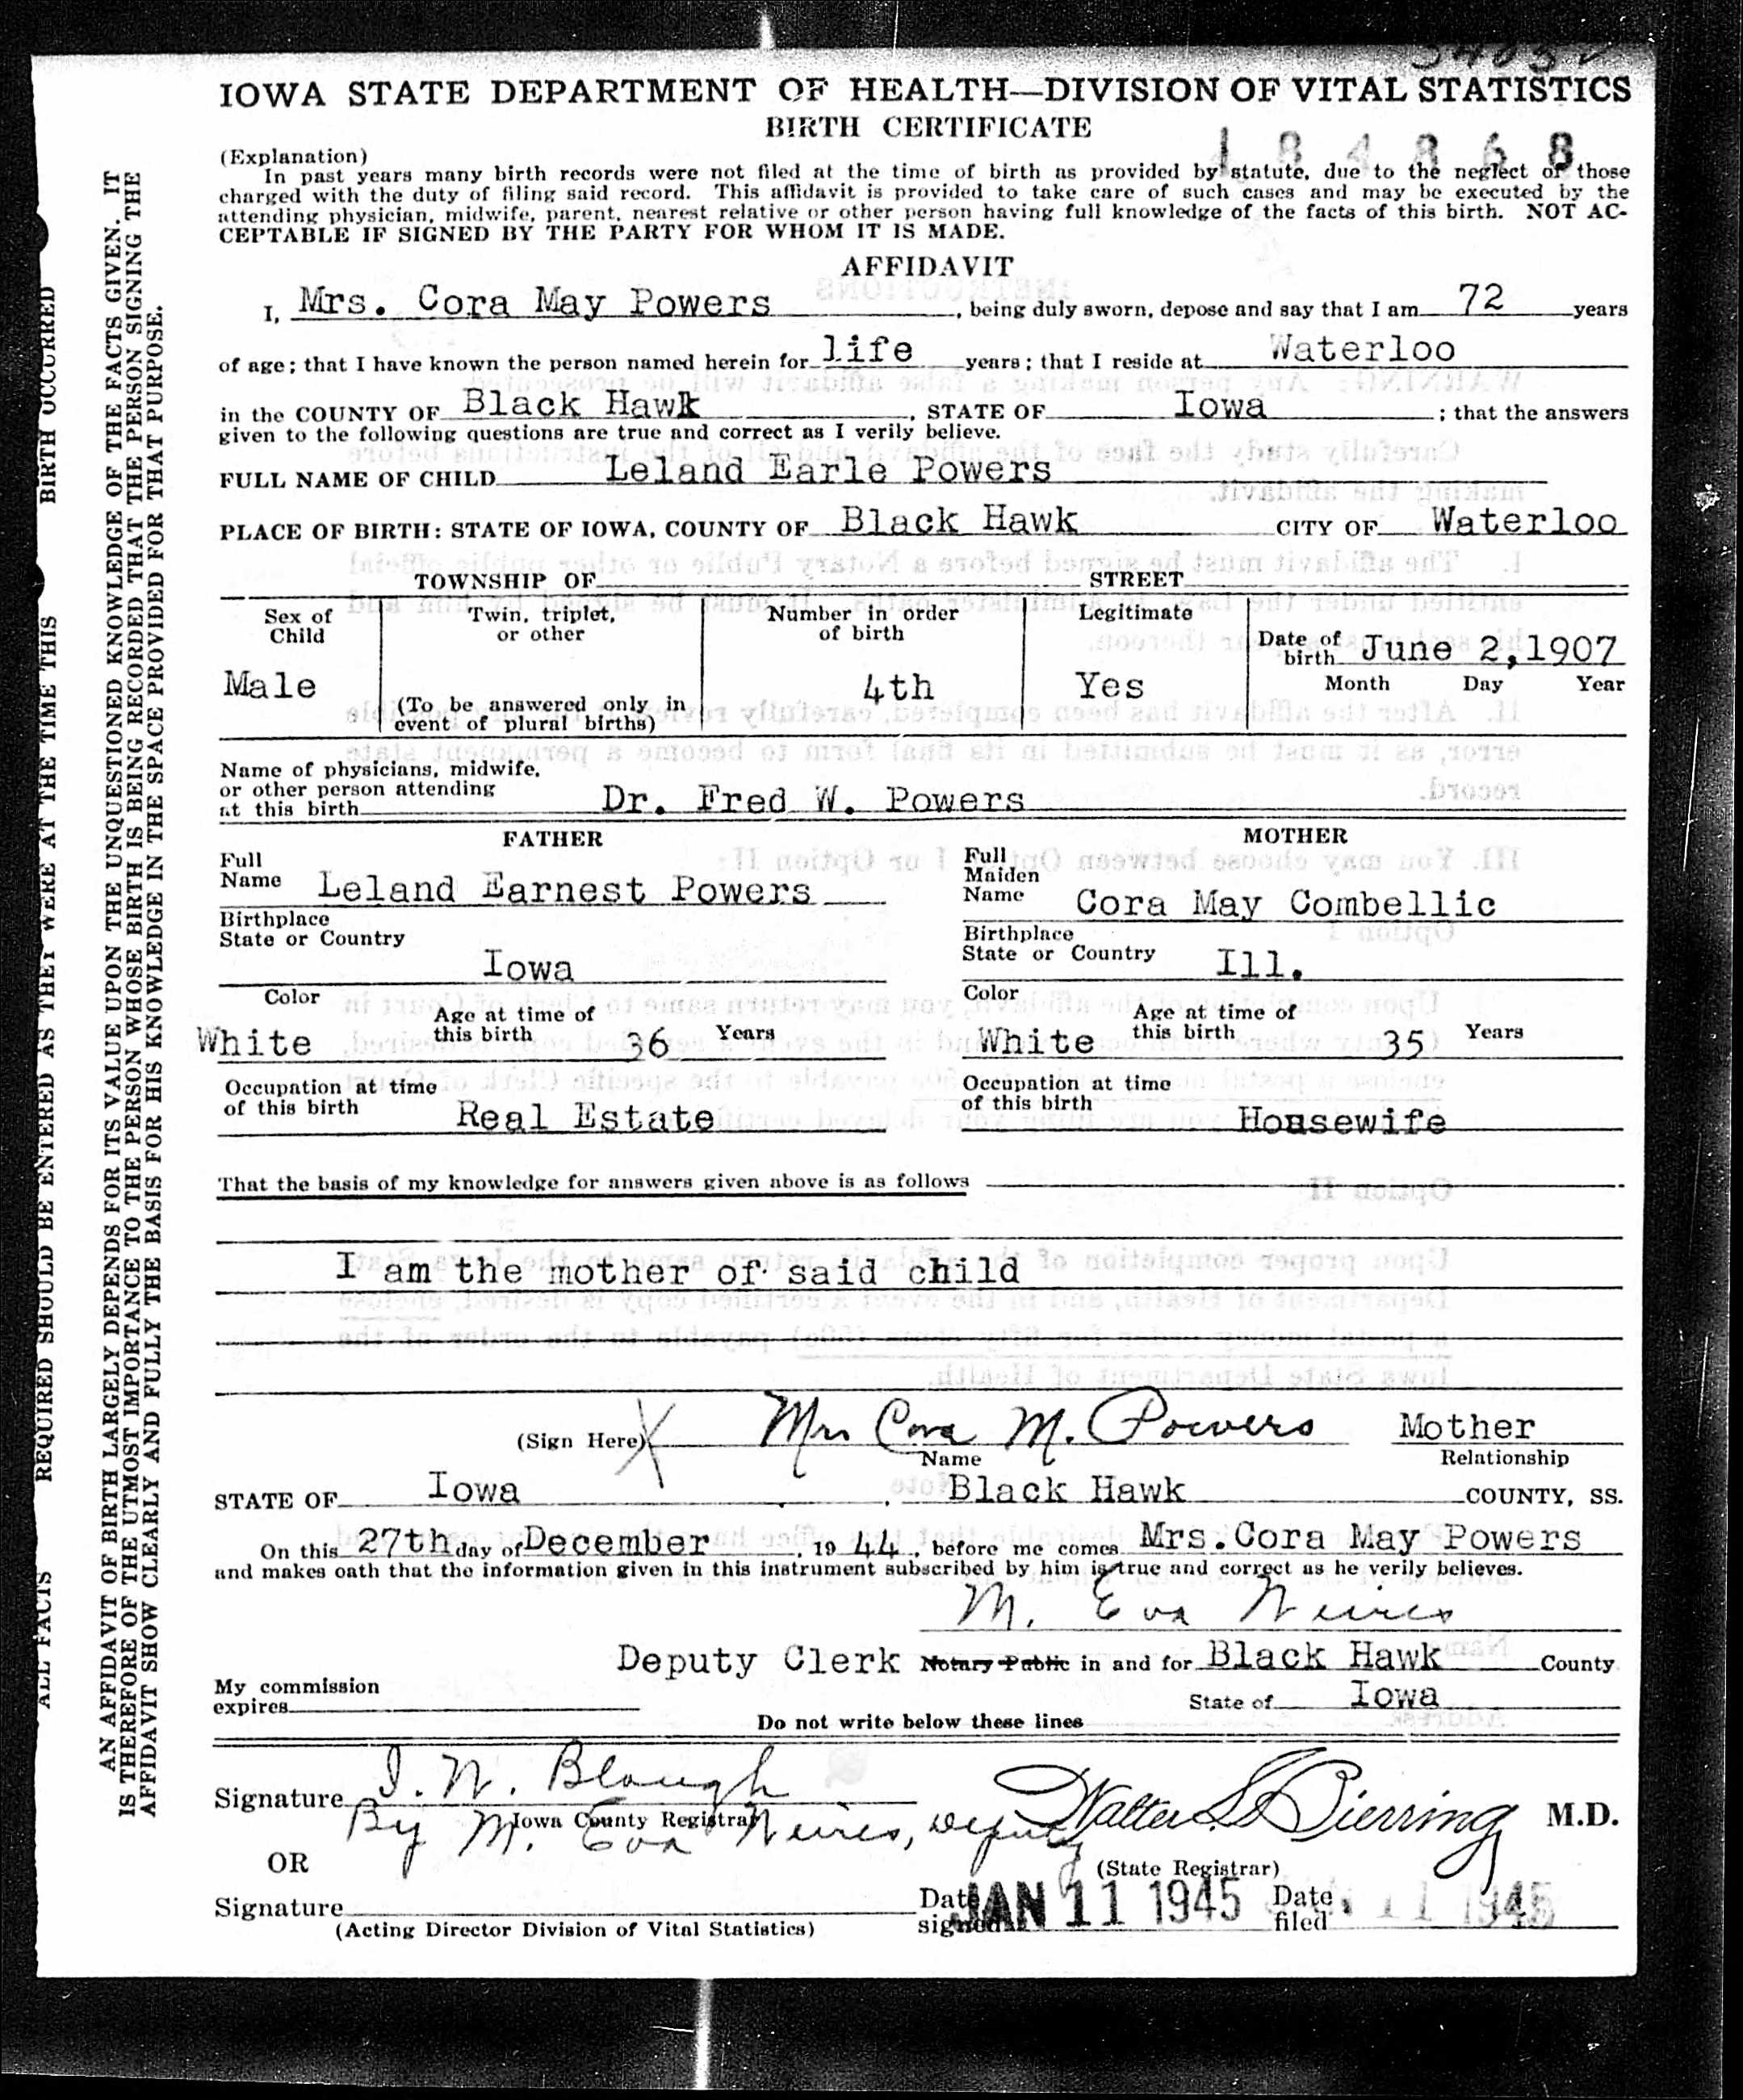 IOWA STATE DEPARTMENT OF HEALTH—DIVISION OF VITAL STATISTICS
BIRTH CERTIFICATE
184868
(Explanation)
In past years many birth records were not filed at the time of birth as provided by statute, due to the neglect of those
charged with the duty of filing said record. This affidavit is provided to take care of such cases and may be executed by the
attending physician, midwife, parent, nearest relative or other person having full knowledge of the facts of this birth. NOT AC-
CEPTABLE IF SIGNED BY THE PARTY FOR WHOM IT IS MADE.
AFFIDAVIT
I, Mrs. Cora May Powers, being duly sworn, depose and say that I am 72 years
of age; that I have known the person named herein for life years; that I reside at Waterloo
in the COUNTY OF Black Hawk, STATE OF Iowa; that the answers
given to the following questions are true and correct as I verily believe.
FULL NAME OF CHILD Leland Earle Powers
PLACE OF BIRTH: STATE OF IOWA, COUNTY OF Black Hawk CITY OF Waterloo
TOWNSHIP OF STREET
Sex of Child Male
Twin, triplet, or other
(To be answered only in event of plural births)
Number in order of birth 4th
Legitimate Yes
Date of birth June 2,1907
Month Day Year
Name of physicians, midwife,
or other person attending
at this birth Dr. Fred W. Powers
FATHER
Full Name Leland Earnest Powers
Birthplace
State or Country Iowa
Color White Age at time of this birth 36 Years
Occupation at time of this birth Real Estate
MOTHER
Full Maiden Name Cora May Combellic
Birthplace
State or Country Ill.
Color White Age at time of this birth 35 Years
Occupation at time of this birth Housewife
That the basis of my knowledge for answers given above is as follows
I am the mother of said child
(Sign Here) X Mrs Cora M. Powers Mother
Name Relationship
STATE OF Iowa, Black Hawk COUNTY, SS.
On this 27th day of December, 19 44, before me comes Mrs.Cora May Powers
and makes oath that the information given in this instrument subscribed by him is true and correct as he verily believes.
M. Eva
Deputy Clerk Notary Public in and for Black Hawk County
My commission
expires State of Iowa
Do not write below these lines
Signature I. N. Blough Walter L. Bierring M.D.
Iowa County Registrar
By M. Eva Deputy
OR (State Registrar)
Signature Date signed JAN 11 1945 Date filed 11 1945
(Acting Director Division of Vital Statistics)
ALL FACTS REQUIRED SHOULD BE ENTERED AS THEY WERE AT THE TIME THIS BIRTH OCCURRED
AN AFFIDAVIT OF BIRTH LARGELY DEPENDS FOR ITS VALUE UPON THE UNQUESTIONED KNOWLEDGE OF THE FACTS GIVEN. IT
IS THEREFORE OF THE UTMOST IMPORTANCE TO THE PERSON WHOSE BIRTH IS BEING RECORDED THAT THE PERSON SIGNING THE
AFFIDAVIT SHOW CLEARLY AND FULLY THE BASIS FOR HIS KNOWLEDGE IN THE SPACE PROVIDED FOR THAT PURPOSE.